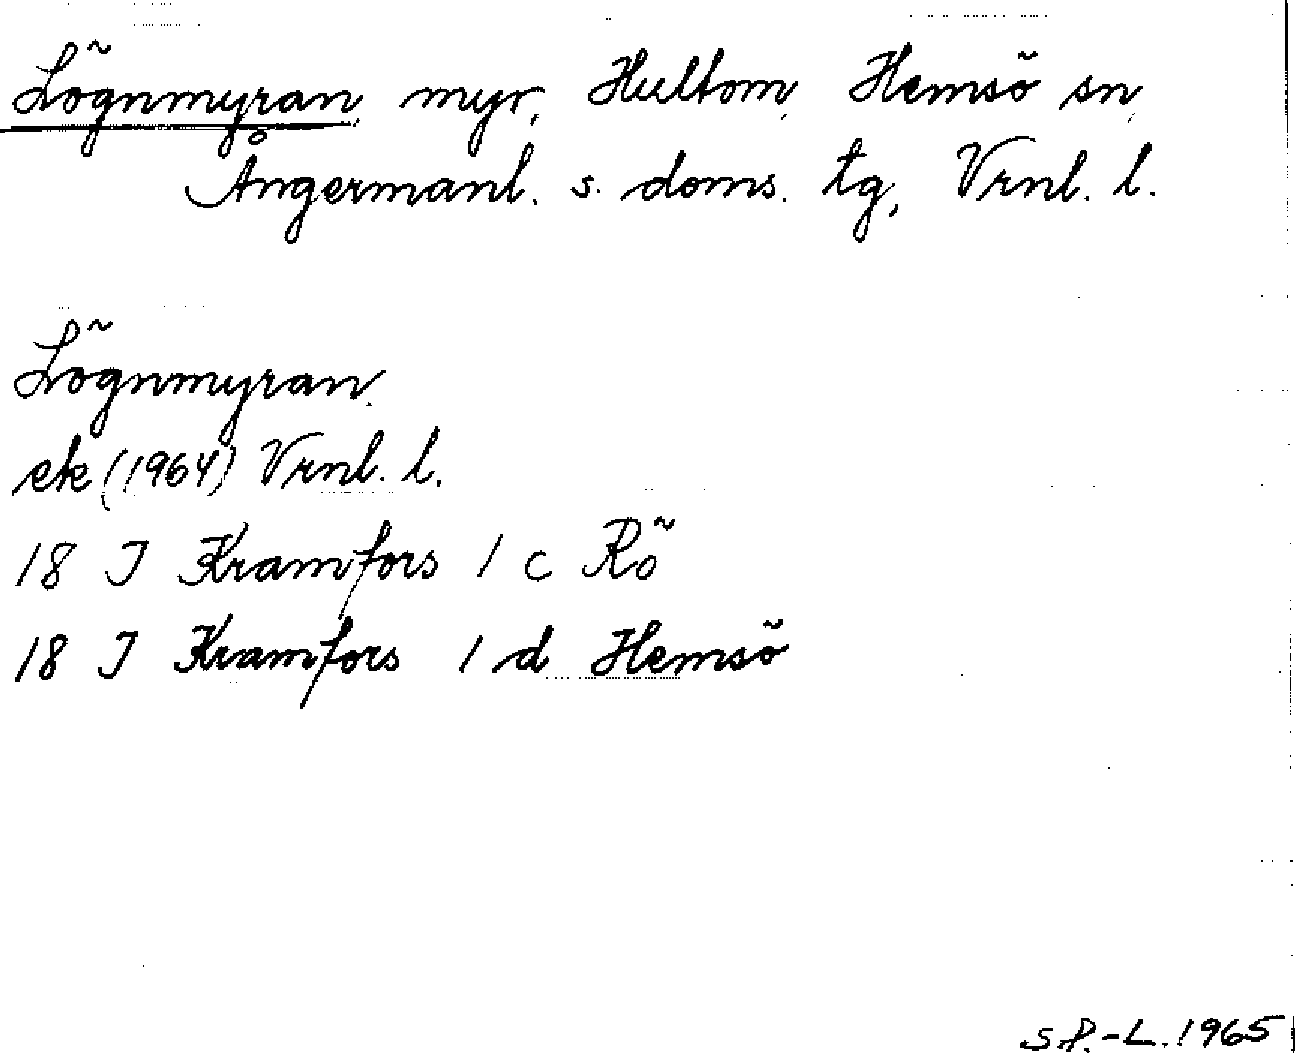 Lögnmyran, myr, Hultom, Hemsö sn,
Ångermanl. s. doms. tg, Vrnl. l.
Lögnmyran.
ek (1964) Vrnl. l.
18 J Kramfors 1 c Rö
18 J Kramfors 1 d Hemsö
S.P.-L. 1965